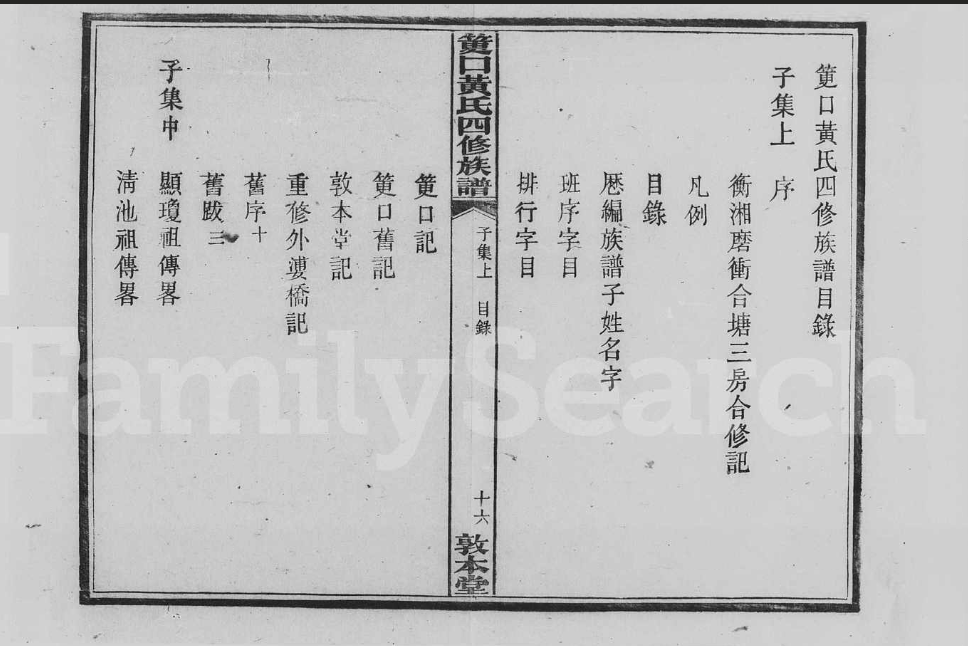 筻口黃氏四修族譜目錄
子集上
序
衡湘磨衝合塘三房合修記
凡例
目錄
歷編族譜子姓名字
班序字目
排行字目
筻口黃氏四修族譜
子集上 目錄
十六
敦本堂
筻口記
筻口舊記
敦本堂記
重修外婆橋記
舊序十
舊跋三
子集中
顯瓊祖傳畧
淸池祖傳畧
FamilySearch